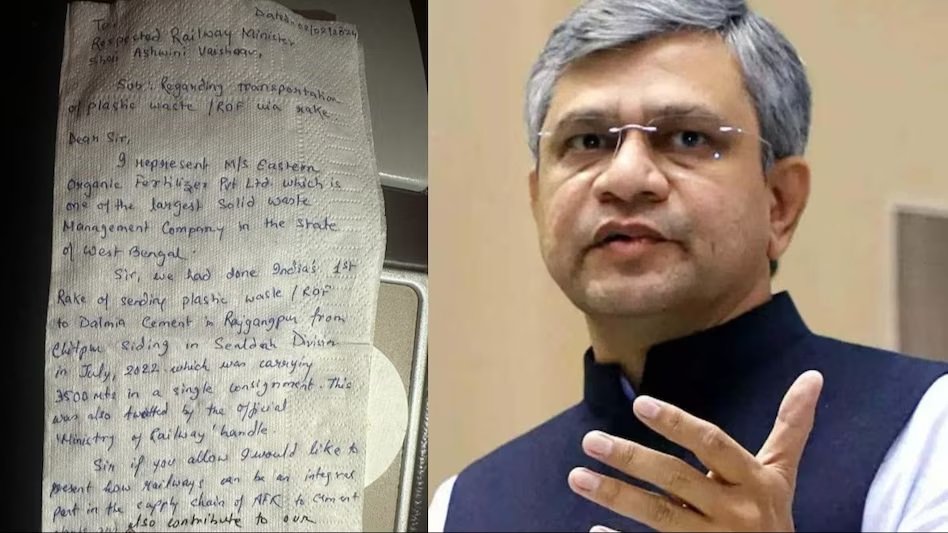 To,
Dated: 02/02/2024
Respected Railway Minister
Shri Ashwini Vaishnav,
Sub: Regarding transportation
of plastic waste / RDF via rake.
Dear Sir,
I represent M/s Eastern
Organic Fertilizer Pvt Ltd. which is
one of the largest Solid waste
Management Company in the state
of West Bengal.
Sir, we had done India's 1st
Rake of sending plastic waste / RDF
to Dalmia Cement in Rajgangpur from
Chitpur Siding in Sealdah Division
in July, 2022 which was carrying
3500 mts in a single consignment. This
was also tweeted by the official
'Ministry of Railway' handle
Sir if you allow I would like to
present how railways can be an integral
part in the supply chain of AFR to cement
also contribute to our